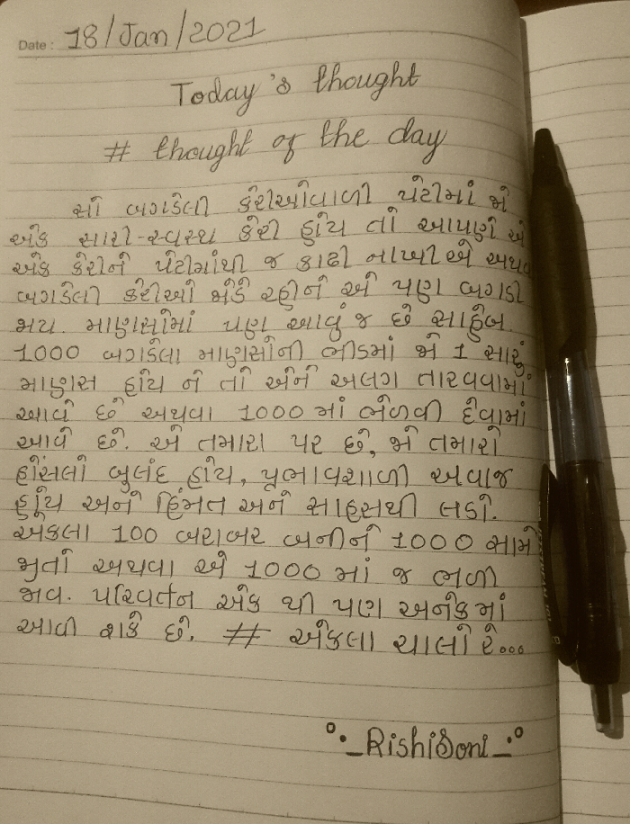 Date: 18/Jan/2021
Today's thought
# thought of the day
સો બગડેલી કેરીઓવાળી પેટીમાં જો
એક સારી-સ્વસ્થ કેરી હોય તો આપણે એ
એક કેરીને પેટીમાંથી જ કાઢી નાખીએ અથવા
બગડેલી કેરીઓ જોડે રહીને એ પણ બગડી
જાય. માણસોમાં પણ આવું જ છે સાહેબ.
1000 બગડેલા માણસોની ભીડમાં જો 1 સારું
માણસ હોય ને તો એને અલગ તારવવામાં
આવે છે અથવા 1000 માં ભેળવી દેવામાં
આવે છે. એ તમારા પર છે, જો તમારો
હોંસલો બુલંદ હોય, પ્રભાવશાળી અવાજ
હોય અને હિંમત અને સાહસથી લડો.
એકલા 100 બરાબર બનીને 1000 સામે
જીતો અથવા એ 1000 માં જ ભળી
જાવ. પરિવર્તન એક થી પણ અનેકમાં
આવી શકે છે. ## એકલા ચાલો રે...
°•_RishiSoni_•°